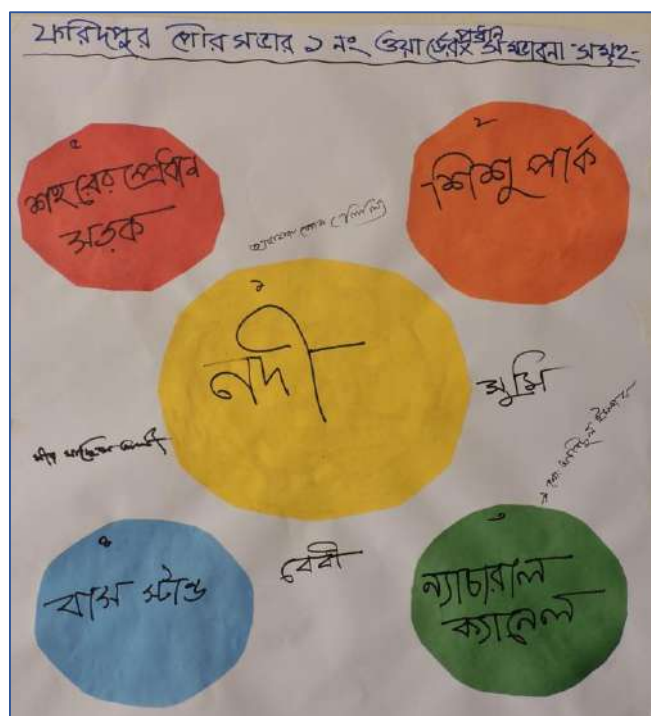 ফরিদপুর পৌরসভার ১ নং ওয়ার্ডের প্রধান সম্ভাবনা সমূহ-
৫
শহরের প্রধান
সড়ক
২
শিশু পার্ক
১
নদী
সুমি
৪
বাস স্টান্ড
বেবী
৩
ন্যাচারাল
ক্যানেল